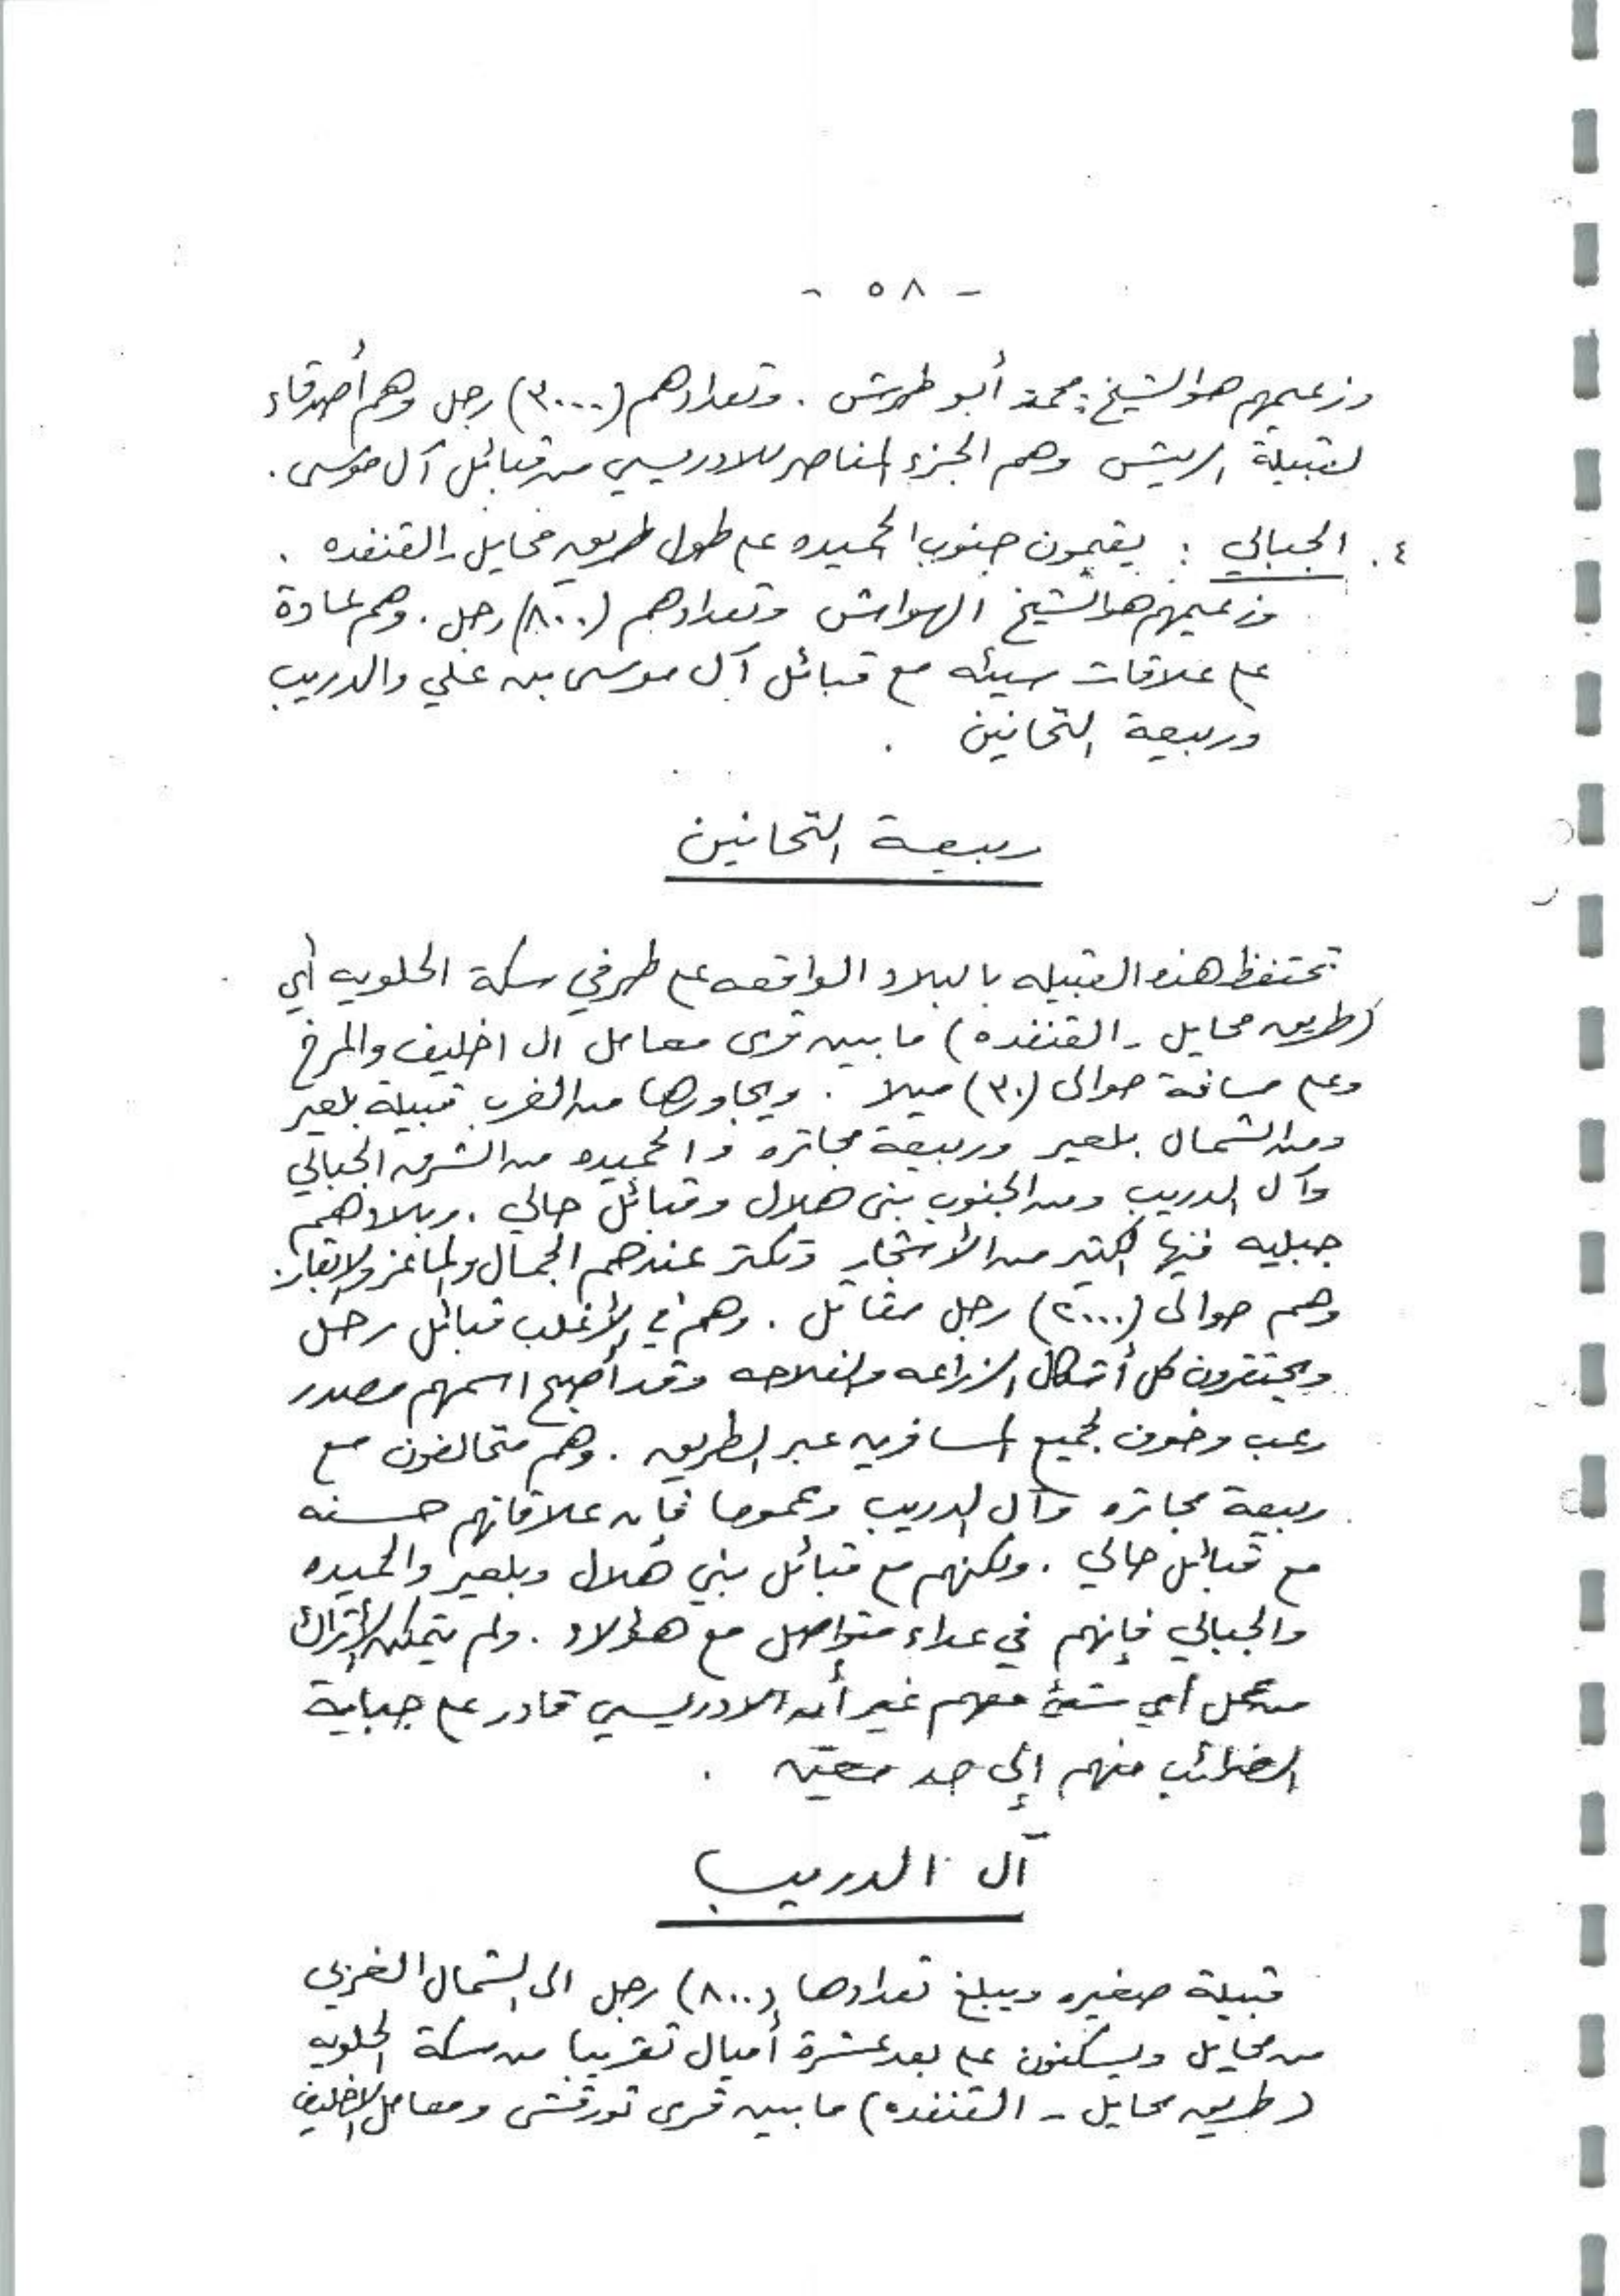 - ٥٨ -
وزعيمهم هو الشيخ: محمد أبو طرش. وتعدادهم (٣٠٠٠) رجل وهم أصدقاء
لقبيلة الريش وهم الجزء المناصر للادريسي من قبائل آل موسى.
٤. الجبالي : يقيمون جنوب الحميده على طول طريق محايل - القنفده .
وزعيمهم هو الشيخ الهواش وتعدادهم (٨٠٠) رجل. وهم عادة
على علاقات سيئه مع قبائل آل موسى بن علي والدريب
وربيعة التحانين .
ربيعة التحانين
تحتفظ هذه القبيله بالبلاد الواقعه على طرفي سكة الحلويه أي
(طريق محايل - القنفده) ما بين قرى معامل ال اخليف والمرخ
وعلى مسافة حوالى (٣٠) ميلا . ويجاورها من الغرب قبيلة بلعير
ومن الشمال بلعير وربيعة مجاتره والحميده من الشرق الجبالي
وآل الدريب ومن الجنوب بني هلال وقبائل حالي . وبلادهم
جبليه فيها الكثير من الأشجار وتكثر عندهم الجمال والماعز والابقار.
وهم حوالى (٢٠٠٠) رجل مقاتل . وهم في الأغلب قبائل رحل
ويحتقرون كل أشكال الزراعه والفلاحه وقد أصبح اسمهم مصدر
رعب وخوف لجميع المسافرين عبر الطريق . وهم متحالفون مع
ربيعة مجاتره وآل الدريب وعموما فإن علاقاتهم حسنه
مع قبائل حالي . ولكنهم مع قبائل بني هلال وبلعير والحميده
والجبالي فإنهم في عداء متواصل مع هؤلاء . ولم يتمكن الأتراك
من عمل أي شئ معهم غير أن الادريسي قادر على جباية
الضرائب منهم إلى حد معين .
آل الدريب
قبيلة صغيره ويبلغ تعدادها (٨٠٠) رجل الى الشمال الغربي
من محايل ويسكنون على بعد عشرة أميال تقريبا من سكة الحلويه
(طريق محايل - القنفده) ما بين قرى تورقش ومعامل الاخليف